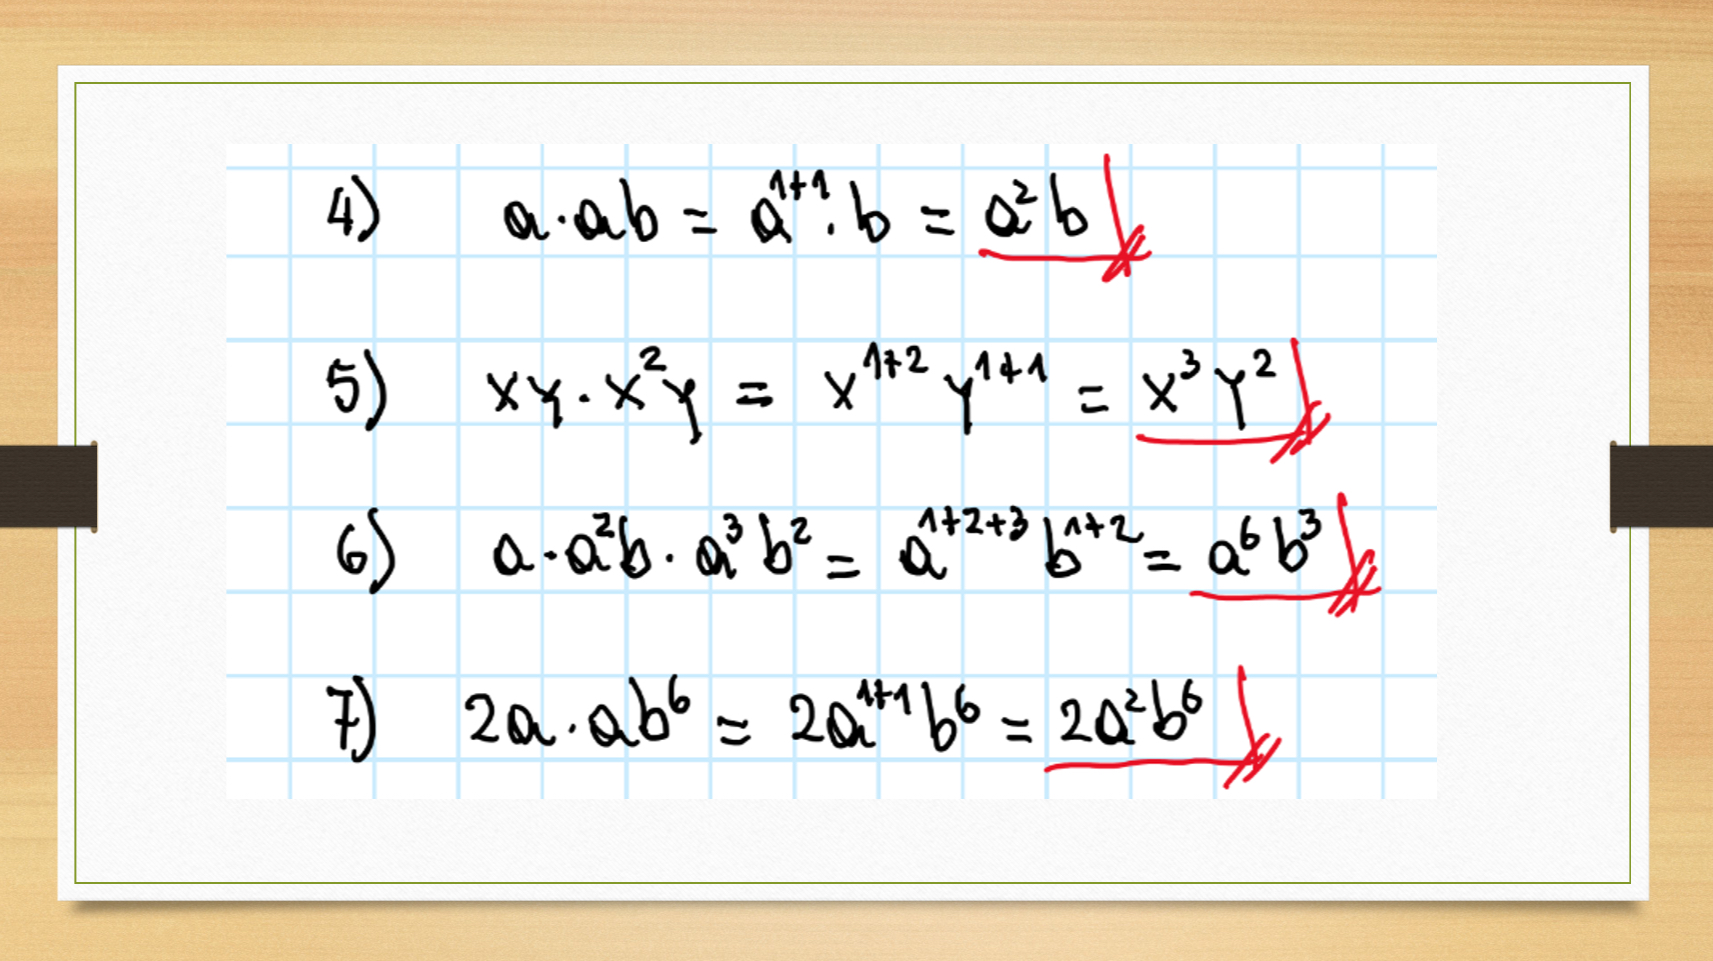 4) a·ab = a¹⁺¹·b = a²b
5) xy·x²y = x¹⁺²y¹⁺¹ = x³y²
6) a·a²b·a³b² = a¹⁺²⁺³b¹⁺² = a⁶b³
7) 2a·ab⁶ = 2a¹⁺¹b⁶ = 2a²b⁶